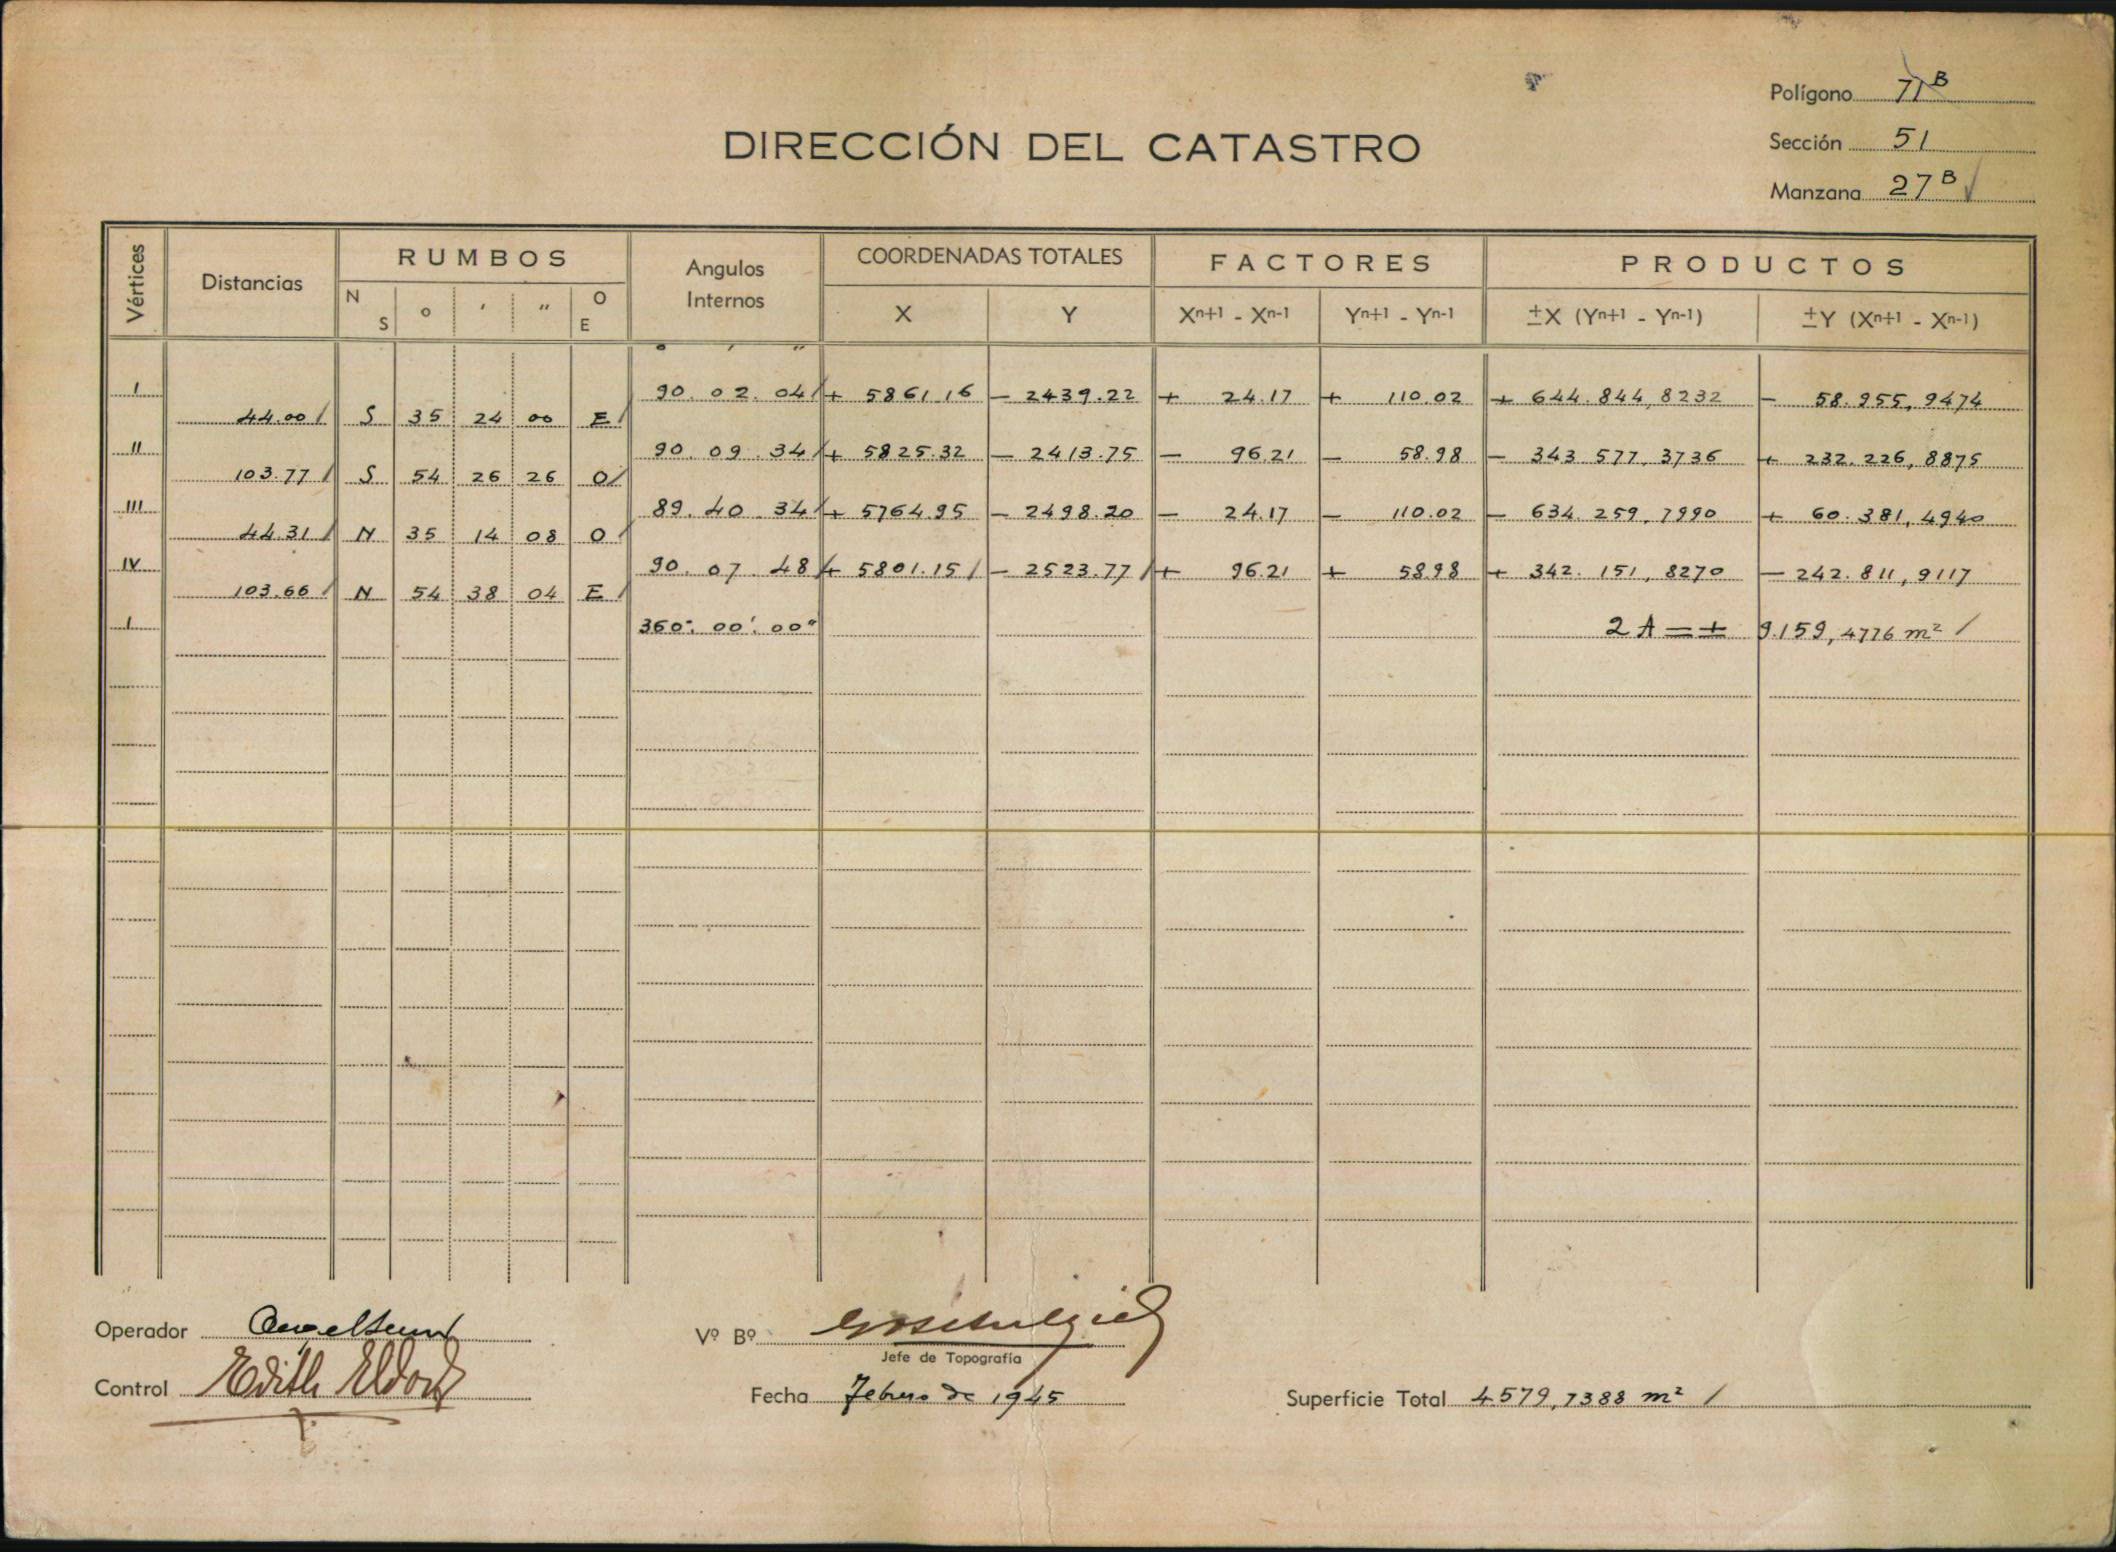 Polígono 71 B
DIRECCIÓN DEL CATASTRO
Sección 51
Manzana 27 B
Vértices Distancias RUMBOS Angulos Internos COORDENADAS TOTALES FACTORES PRODUCTOS
N S ° ' " O E X Y Xn+1 - Xn-1 Yn+1 - Yn-1 ±X (Yn+1 - Yn-1) ±Y (Xn+1 - Xn-1)
° ' "
I 90. 02. 04 + 5861.16 - 2439.22 + 24.17 + 110.02 + 644.844,8232 - 58.955,9474
44.00 S 35 24 00 E
II 90. 09. 34 + 5825.32 - 2413.75 - 96.21 - 58.98 - 343.577,3736 + 232.226,8875
103.77 S 54 26 26 O
III 89. 40. 34 + 5764.95 - 2498.20 - 24.17 - 110.02 - 634.259,7990 + 60.381,4940
44.31 N 35 14 08 O
IV 90. 07. 48 + 5801.15 - 2523.77 + 96.21 + 58.98 + 342.151,8270 - 242.811,9117
103.66 N 54 38 04 E
I 360°. 00'. 00" 2 A = + 9.159,4776 m²
Operador
Vº Bº
Jefe de Topografía
Control Edith
Fecha Febrero de 1945
Superficie Total 4.579,7388 m²